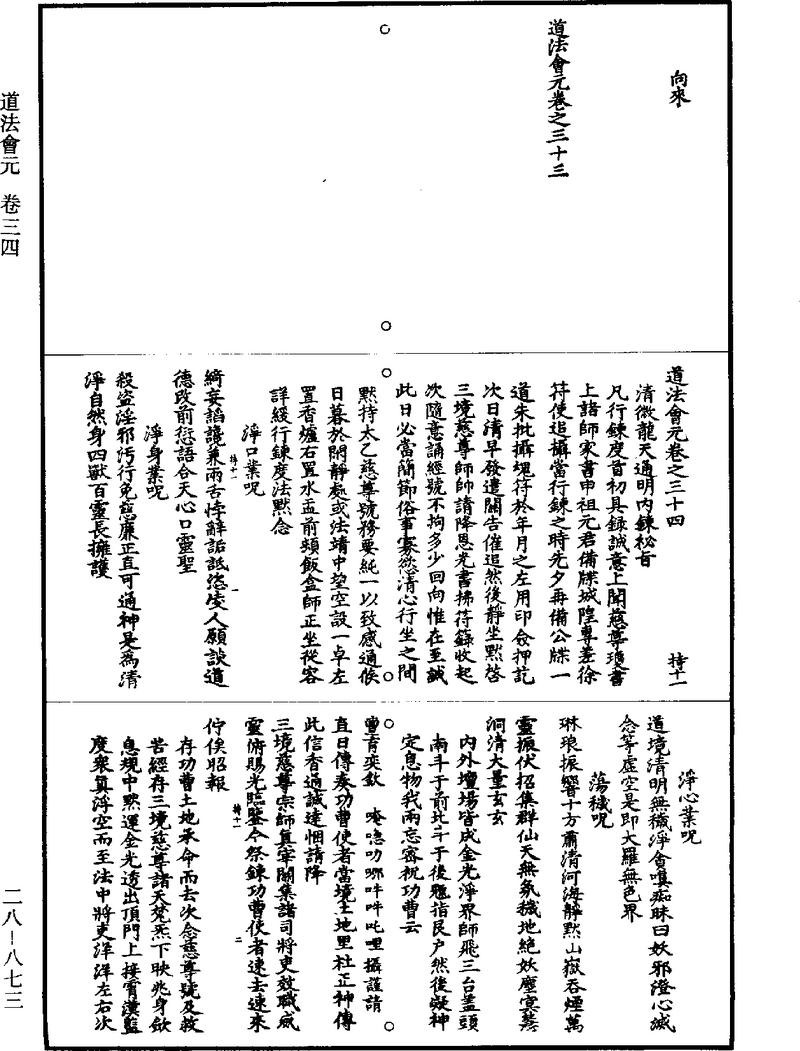 道法會元　卷三四
二八－八七三
向來
道法會元卷之三十三
道法會元卷之三十四
持十一
清微龍天通明內鍊秘旨
凡行鍊度首初具錄誠意上聞慈尊瓊書
上諸師家書申祖元君備牒城隍專差徐
符使追攝當行鍊之時先夕再備公牒一
道朱批攝魂符於年月之左用印僉押訖
次日清早發遣關告催追然後靜坐默啓
三境慈尊師帥請降恩光書拂符籙收起
次隨意誦經號不拘多少回向惟在至誠
此日必當簡節俗事寡慾清心行坐之間
默持太乙慈尊號務要純一以致感通候
日暮於閑靜處或法靖中望空設一卓左
置香爐右置水盂前頫飯盒師正坐從容
詳緩行鍊度法默念
淨口業呪
綺妄謟譏兼兩舌悖辭詬詆恣凌人願談道
德改前愆語合天心口靈聖
淨身業呪
殺盜淫邪汚行免慈廉正直可通神是爲清
淨自然身四獸百靈長擁護
淨心業呪
道境清明無穢淨貪嗔痴昧曰妖邪澄心滅
念等虛空是即大羅無色界
蕩穢呪
琳琅振響十方肅清河海靜默山嶽吞煙萬
靈振伏招集群仙天無氛穢地絕妖塵冥慧
洞清大量玄玄
內外壇場皆成金光淨界師飛三台蓋頭
南斗于前北斗于後魁指艮戶然後凝神
定息物我兩忘密祝功曹云
直日傳奏功曹使者當境土地里社正神傳
此信香通誠達悃請降
三境慈尊宗師眞宰關集諸司將吏效職咸
靈俯賜光臨鑒今祭鍊功曹使者速去速來
佇俟昭報
存功曹土地承命而去次念慈尊號及救
苦經存三境慈尊諸天梵炁下映兆身歛
息現中黙運金光透出頂門上接霄漢監
度衆眞浮空而至法中將吏洋洋左右次